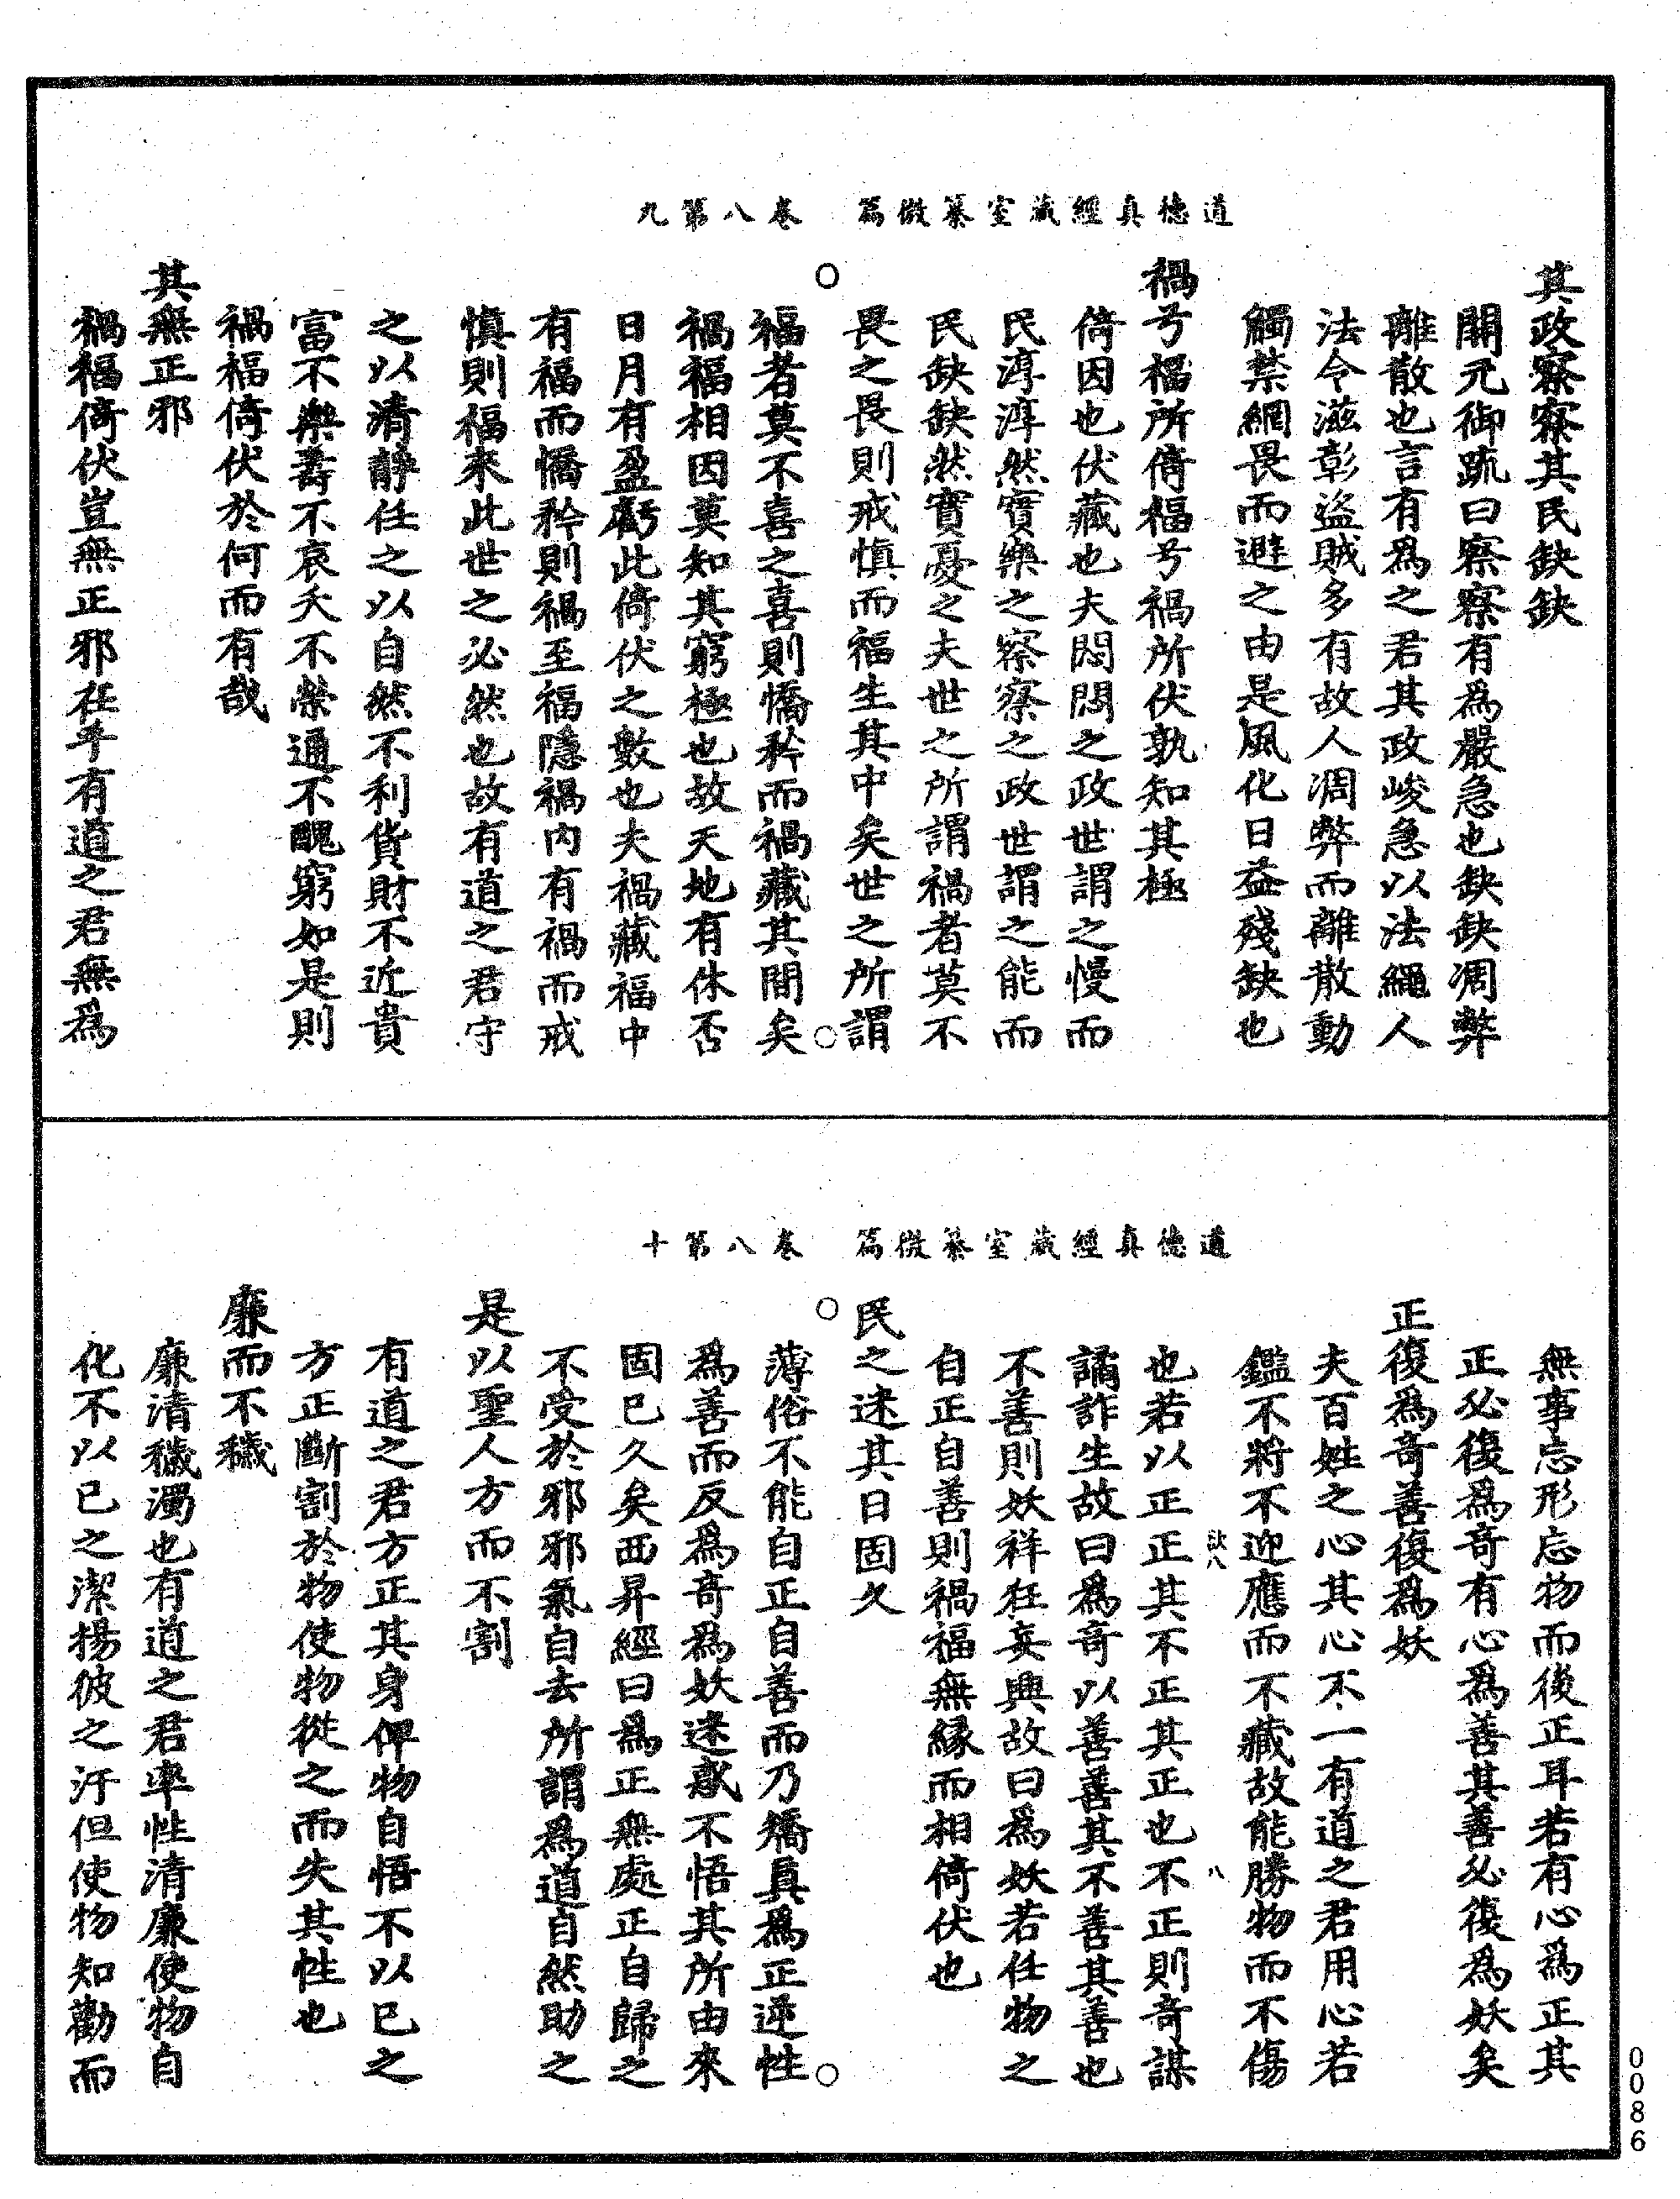 道德真經藏室纂微篇　卷八第九
其政察察其民缺缺
開元御疏曰察察有為嚴急也缺缺凋弊
離散也言有為之君其政峻急以法繩人
法令滋彰盜賊多有故人凋弊而離散動
觸禁網畏而避之由是風化日益殘缺也
禍兮福所倚福兮禍所伏孰知其極
倚因也伏藏也夫悶悶之政世謂之慢而
民淳淳然實樂之察察之政世謂之能而
民缺缺然實憂之夫世之所謂禍者莫不
畏之畏則戒慎而福生其中矣世之所謂
福者莫不喜之喜則憍矜而禍藏其間矣
禍福相因莫知其窮極也故天地有休否
日月有盈虧此倚伏之數也夫禍藏福中
有福而憍矜則禍至福隱禍內有禍而戒
慎則福來此世之必然也故有道之君守
之以清靜任之以自然不利貨財不近貴
富不樂壽不哀夭不榮通不醜窮如是則
禍福倚伏於何而有哉
其無正邪
禍福倚伏豈無正邪在乎有道之君無為
道德真經藏室纂微篇　卷八第十
無事忘形忘物而後正耳若有心為正其
正必復為奇有心為善其善必復為妖矣
正復為奇善復為妖
夫百姓之心其心不一有道之君用心若
鑑不將不迎應而不藏故能勝物而不傷
欲八　八
也若以正正其不正其正也不正則奇謀
譎詐生故曰為奇以善善其不善其善也
不善則妖祥狂妄興故曰為妖若任物之
自正自善則禍福無緣而相倚伏也
民之迷其日固久
薄俗不能自正自善而乃矯真為正逆性
為善而反為奇為妖迷惑不悟其所由來
固已久矣西昇經曰為正無處正自歸之
不受於邪邪氣自去所謂為道自然助之
是以聖人方而不割
有道之君方正其身俾物自悟不以已之
方正斷割於物使物從之而失其性也
廉而不穢
廉清穢濁也有道之君率性清廉使物自
化不以已之潔揚彼之汙但使物知勸而
0086